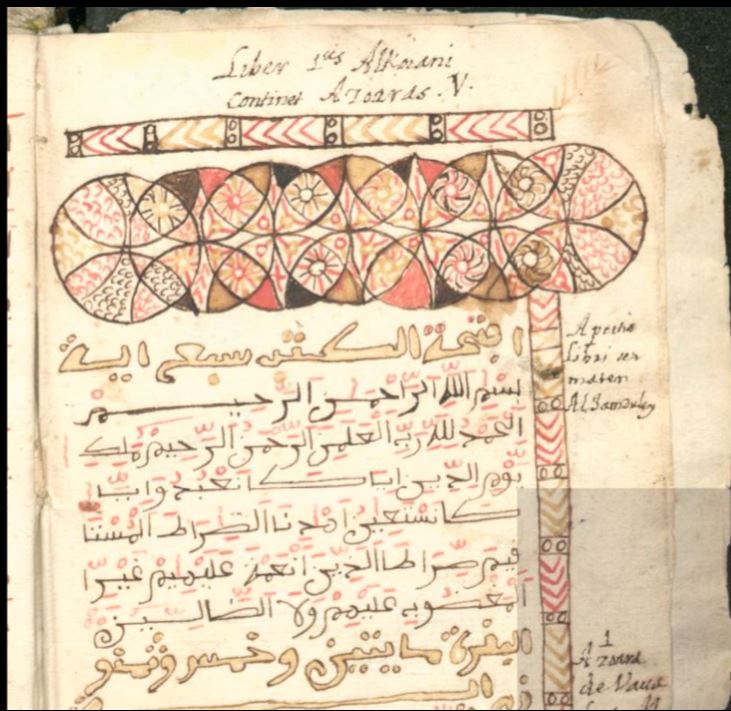 Liber 1us Alkorani
Continet Azoaras . V.
افتحة الكتب سبع اية
بسم الله الراحمن الرحيم
الحمد لله رب العلمين الرحمن الرحيم ملك
يوم الدين اياك نعبد وايا
ك نستعين اهدنا الصراط المستا
قيم صراط الذين انعمت عليهم غيرا
المغضوب عليهم ولا الضالين
البقرة مايتين وخمس وثمنو
Libri seu
maten
Alhamduley
1
Azoara
de Vacca